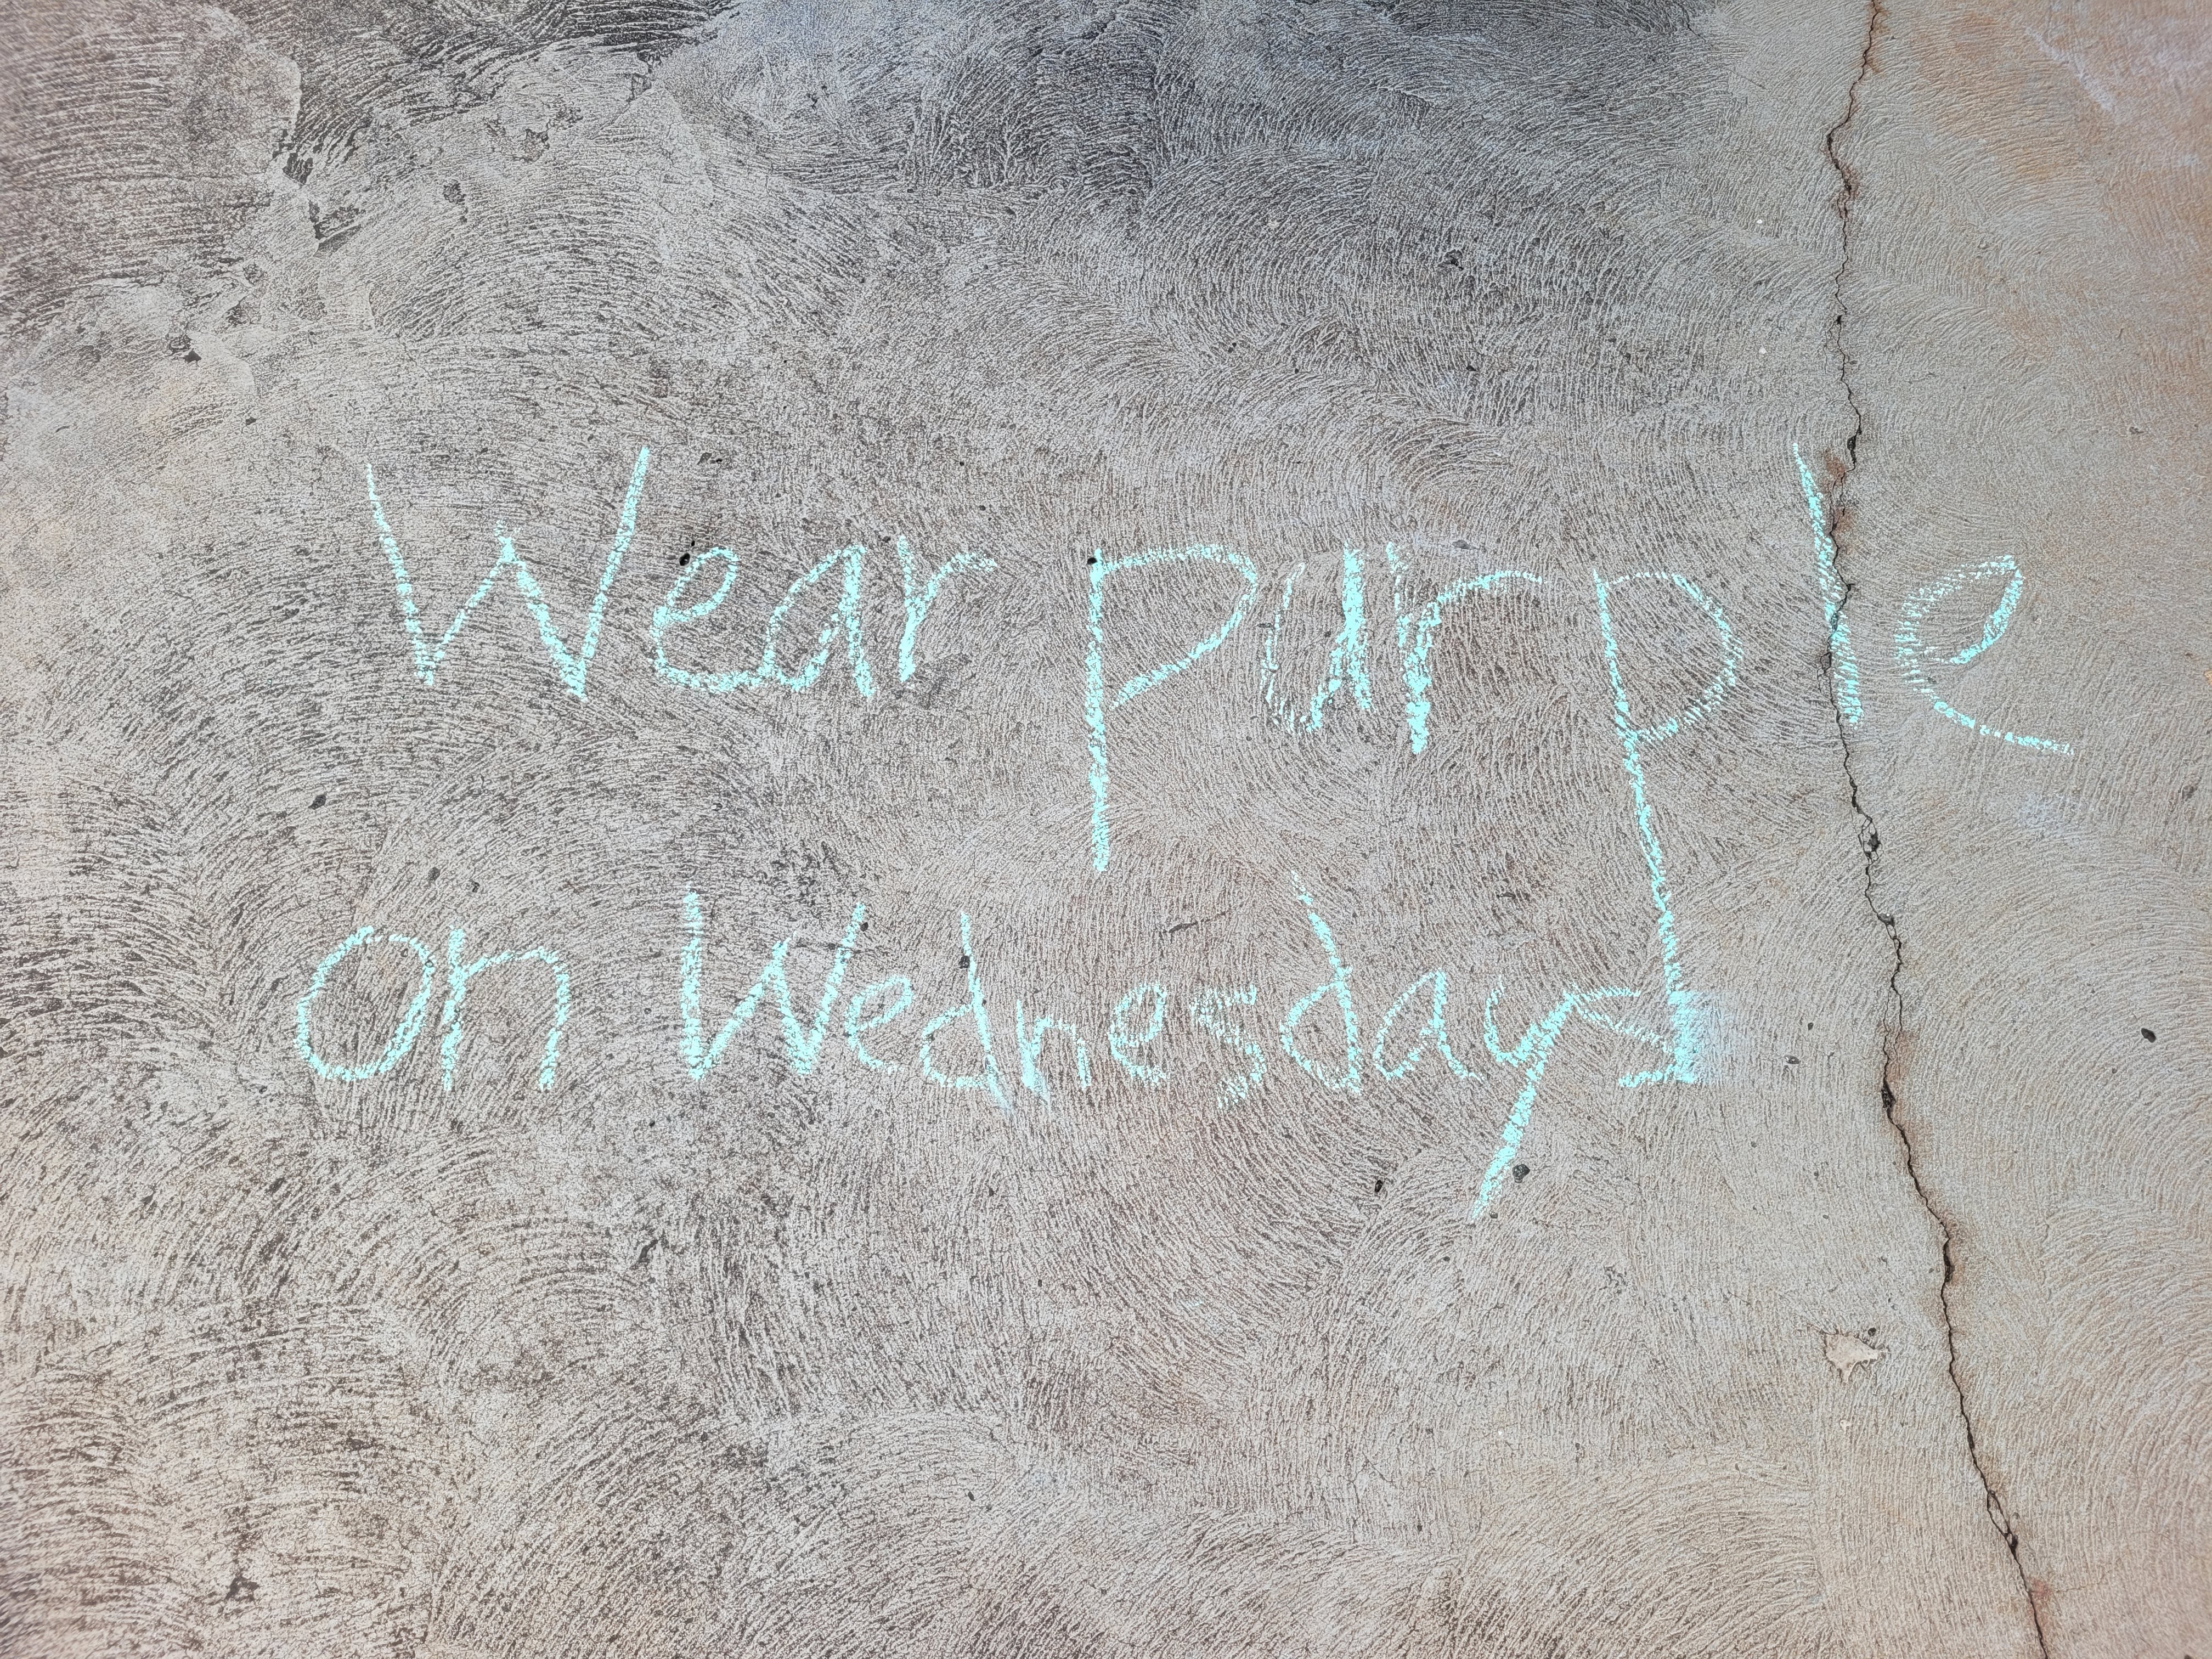 Wear purple
on Wednesdays